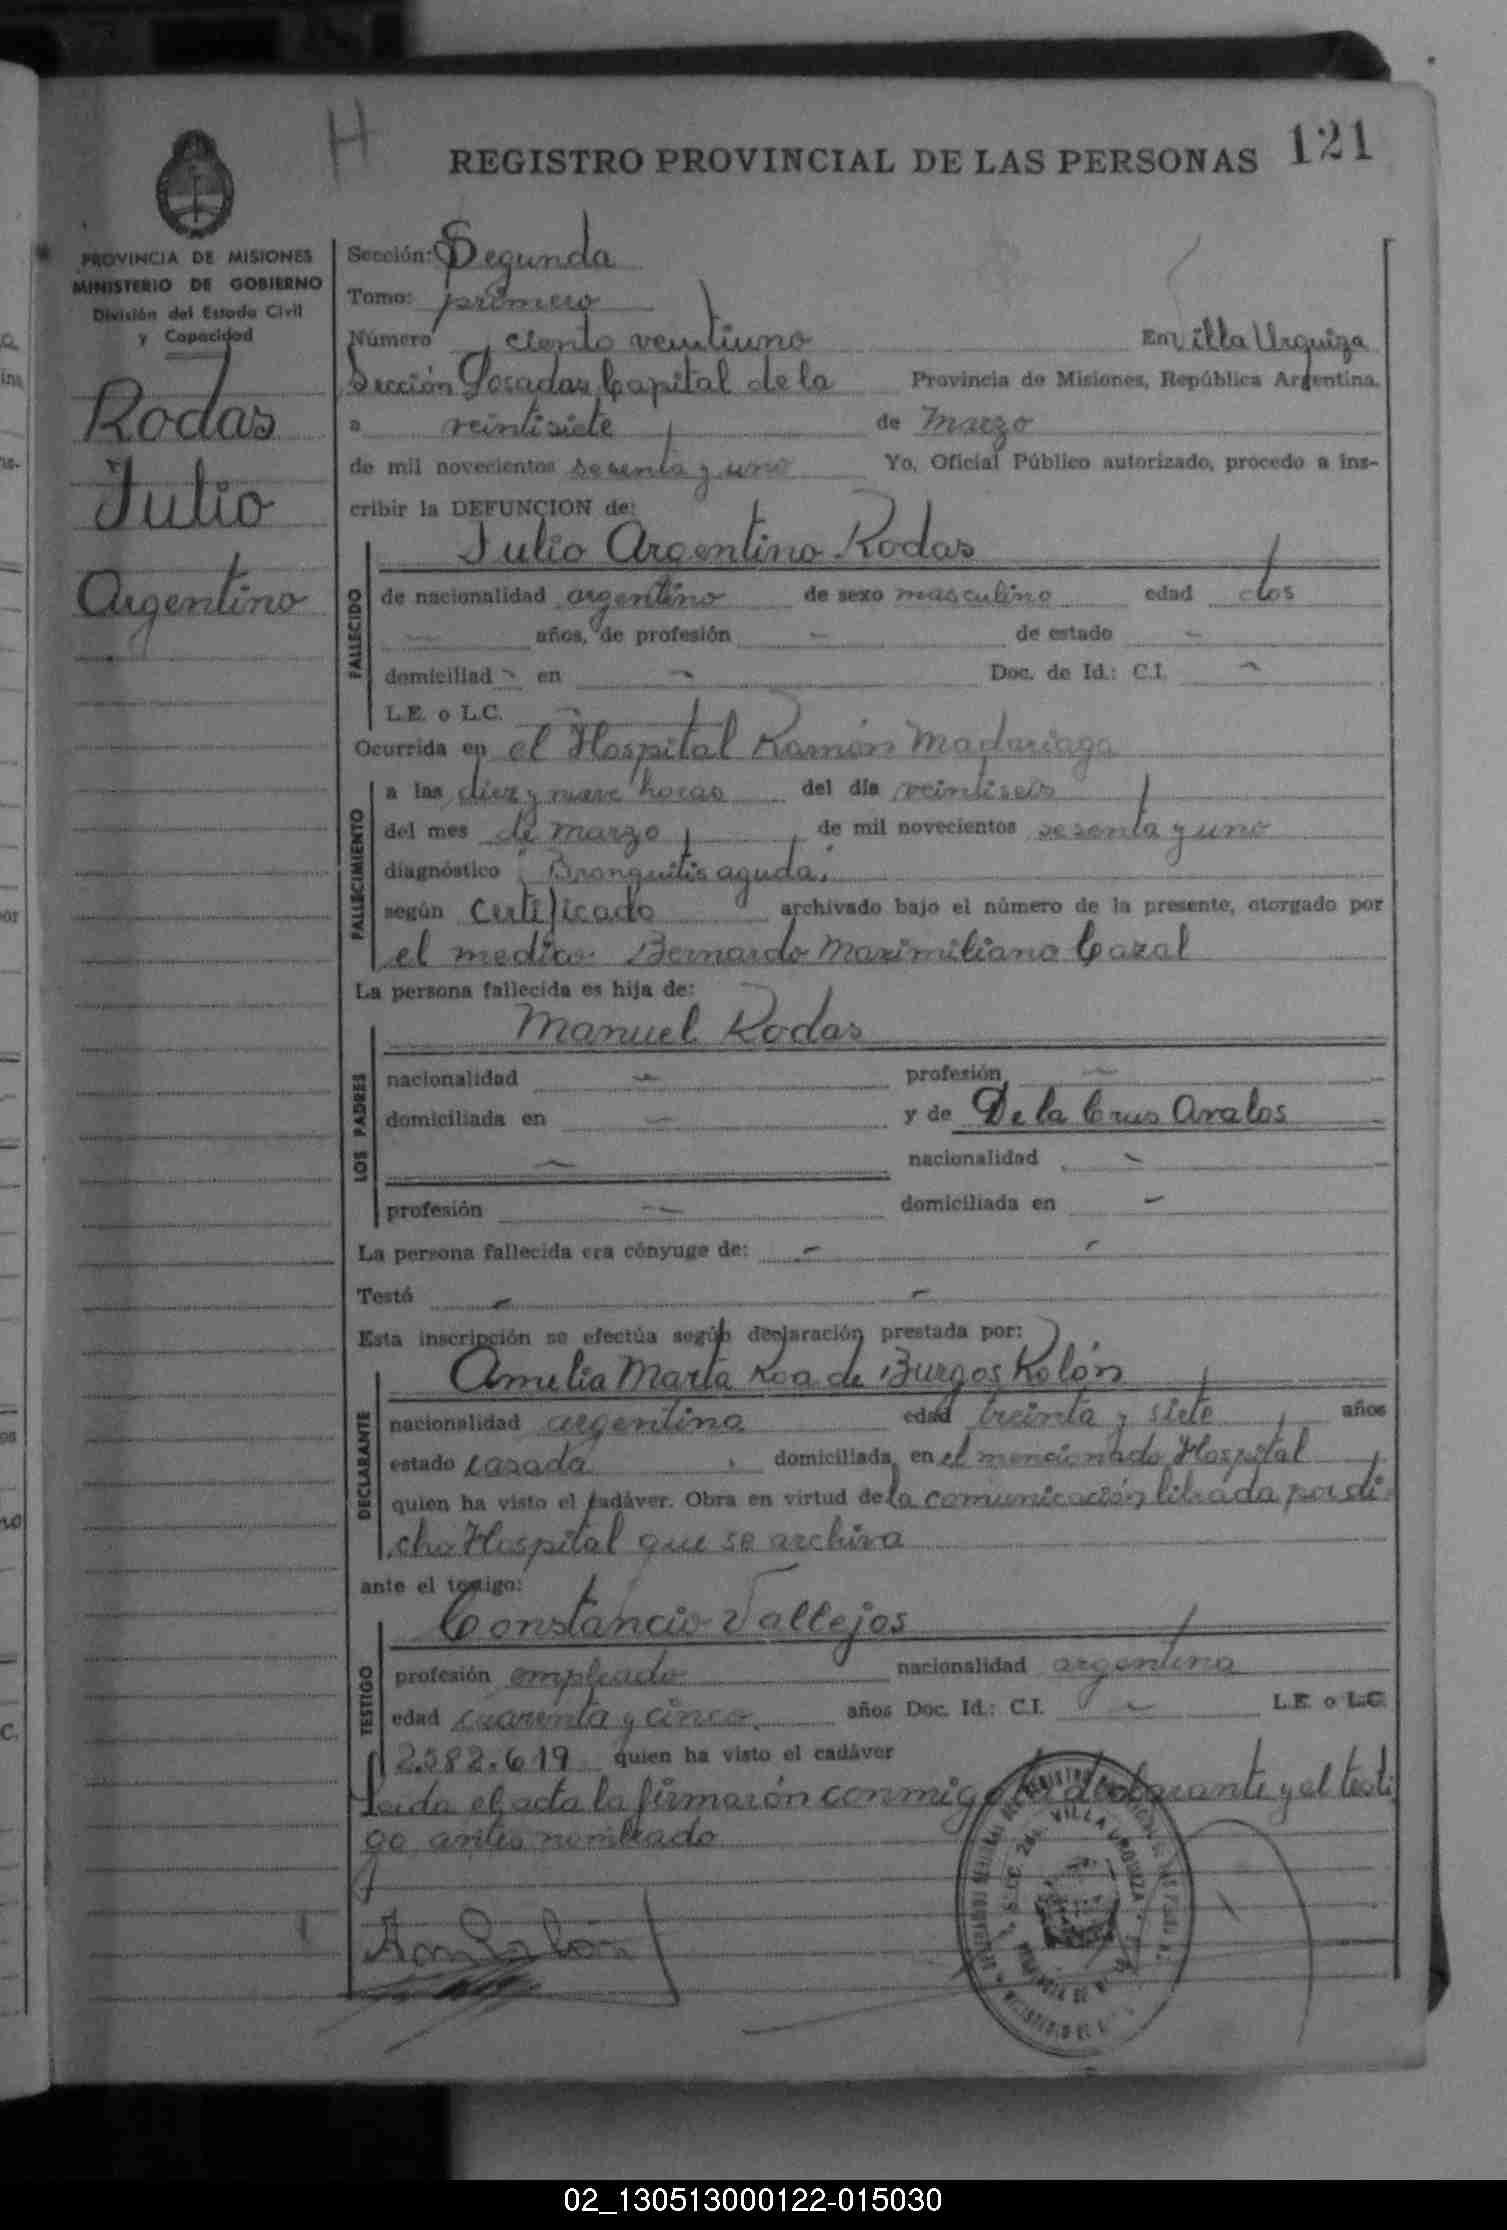 H
REGISTRO PROVINCIAL DE LAS PERSONAS 121
PROVINCIA DE MISIONES
MINISTERIO DE GOBIERNO
División del Estado Civil
y Capacidad
Rodas
Julio
Argentino
Sección: Segunda
Tomo: primero
Número ciento veintiuno En Villa Urquiza
Sección Posadas, Capital de la Provincia de Misiones, República Argentina,
a veintisiete de Marzo
de mil novecientos sesenta y uno Yo, Oficial Público autorizado, procedo a ins-
cribir la DEFUNCION de:
Julio Argentino Rodas
FALLECIDO
de nacionalidad argentino de sexo masculino edad dos
años, de profesión de estado
domiciliad en Doc. de Id.: C.I.
L.E. o L.C.
Ocurrida en el Hospital Ramón Madariaga
FALLECIMIENTO
a las diez y nueve horas del día veintiseis
del mes de marzo de mil novecientos sesenta y uno
diagnóstico "Bronquitis aguda"
según Certificado archivado bajo el número de la presente, otorgado por
el medico Bernardo Maximiliano Cazal
La persona fallecida es hija de:
Manuel Rodas
LOS PADRES
nacionalidad profesión
domiciliada en y de De la Crus Avalos
nacionalidad
profesión domiciliada en
La persona fallecida era cónyuge de:
Testó
Esta inscripción se efectúa según declaración prestada por:
Amelia Marta Roa de Burgos Rolón
DECLARANTE
nacionalidad argentina edad treinta y siete años
estado casada domiciliada en el mencionado Hospital
quien ha visto el cadáver. Obra en virtud de la comunicación librada por di
cho Hospital que se archiva
ante el testigo:
Constancio Vallejos
TESTIGO
profesión empleado nacionalidad argentina
edad cuarenta y cinco años Doc. Id.: C.I. L.E. o L.C.
2.582.619 quien ha visto el cadáver
Leida el acta la firmaron conmigo la declarante y el testi
go antes nombrado
SECC. 2da. VILLA URQUIZA
02_130513000122-015030